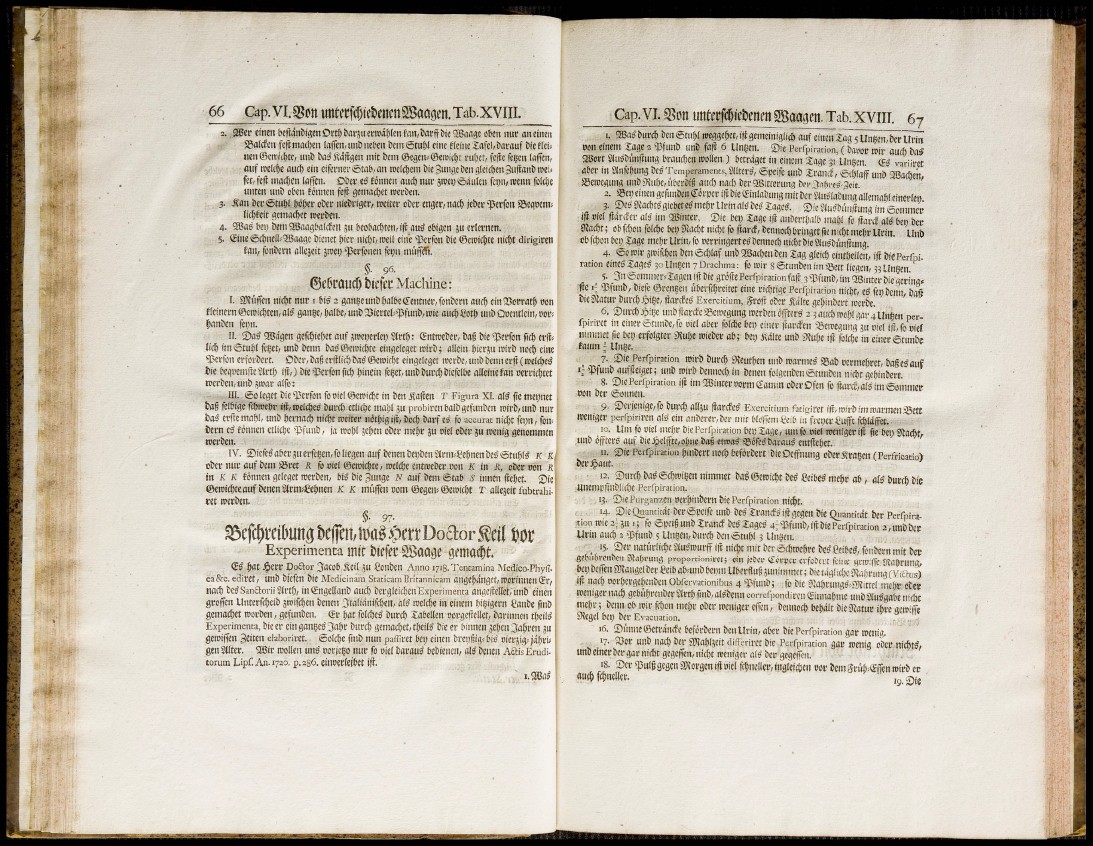 66 Cap. VI. Von unterschiedenen Waagen. Tab. XVIII.
2. Wer einen beständigen Orth darzu erwählen kan, darff die Waage oben nur an einen
Balcken fest machen lassen, und neben dem Stuhl eine kleine Tafel, darauf die klei-
nen Gewichte, und das Kästgen mit dem Gegen-Gewicht ruhet, feste setzen lassen,
auf welche auch ein eiserner Stab, an welchem die Zunge den gleichen Zustand wei-
set, fest machen lassen. Oder es können auch nur zwey Säulen seyn, wenn solche
unten und oben können fest gemachet werden.
3. Kan der Stuhl höher oder niedriger, weiter oder enger, nach jeder Person Beqvem-
lichkeit gemachet werden.
4. Was bey dem Waagbalcken zu beobachten, ist aus obigen zu erlernen.
5. Eine Schnell-Waage dienet hier nicht, weil eine Person die Gewichte nicht dirigiren
kan, sondern allezeit zwey Personen seyn müssen.
§. 96.
Gebrauch dieser Machine:
I. Müssen nicht nur 1 bis 2 gantze und halbe Centner, sondern auch ein Vorrath von
kleinern Gewichten, als gantze, halbe, und Viertel-Pfund, wie auch Loth und Qventlein, vor-
handen seyn.
II. Das Wägen geschiehet auf zweyerley Arth: Entweder, daß die Person sich erst-
lich im Stuhl setzet, und denn das Gewichte eingeleget wird; allein hierzu wird noch eine
Person erfordert. Oder, daß erstlich das Gewicht eingeleget werde, und denn erst (welches
die beqvemste Arth ist,) die Person sich hinein setzet, und durch dieselbe alleine kan verrichtet
werden, und zwar also:
III. So leget die Person so viel Gewicht in den Kasten T Figura XI. als sie meynet
daß selbige schwehr ist, welches durch etliche mahl zu probiren bald gefunden wird, und nur
das erste mahl, und hernach nicht weiter nöthig ist, doch darf es so accurat nicht seyn, son-
dern es können etliche Pfund, ja wohl zehen oder mehr zu viel oder zu wenig genommen
werden.
IV. Dieses aber zu ersetzen, so liegen auf denen beyden Arm-Lehnen des Stuhls K K
oder nur auf dem Bret R so viel Gewichte, welche entweder von K in R, oder von R
in K K können geleget werden, bis die Zunge N auf dem Stab S innen stehet. Die
Gewichte auf denen Arm-Lehnen K K müssen vom Gegen-Gewicht T allezeit subtrahi-
ret werden.
§. 97.
Beschreibung dessen, was Herr Doctor Keil vor
Experimenta mit dieser Waage gemacht.
Es hat Herr Doctor Jacob Keil zu Londen Anno 1718. Tentamina Medico-Physi-
ca &c. ediret, und diesen die Medicinam Staticam Britannicam angehänget, worinnen Er,
nach des Sanctorii Arth, in Engelland auch dergleichen Experimenta angestellet, und einen
grossen Unterscheid zwischen denen Italiänischen, als welche in einem hitzigern Lande sind
gemachet worden, gefunden. Er hat solches durch Tabellen vorgestellet, darinnen theils
Experimenta, die er ein gantzes Jahr durch gemachet, theils die er binnen zehen Jahren zu
gewissen Zeiten elaboriret. Solche sind nun passiret bey einen dreyßig- bis vierzig-jähri-
gen Alter. Wir wollen uns vorjetzo nur so viel daraus bedienen, als denen Actis Erudi-
torum Lips. An. 1720. p. 286. einverleibet ist.
1. Was
Cap. VI. Von unterschiedenen Waagen. Tab. XVIII. 67
1. Was durch den Stuhl weggehet, ist gemeiniglich auf einen Tag 5 Untzen, der Urin
von einem Tage 2 Pfund und fast 6 Untzen. Die Perspiration, (davor wir auch das
Wort Ausdünstung brauchen wollen) beträget in einem Tage 31 Untzen. Es variiret
aber in Ansehung des Temperaments, Alters, Speise und Tranck, Schlaff und Wachen,
Bewegung und Ruhe, überdiß auch nach der Witterung der Jahres-Zeit.
2. Bey einen gesunden Cörper ist die Einladung mit der Ausladung allemahl einerley.
3. Des Nachts giebet es mehr Urin als des Tages. Die Ausdünstung im Sommer
ist viel stärcker als im Winter. Die bey Tage ist anderthalb mahl so starck als bey der
Nacht; ob schon solche bey Nacht nicht so starck, dennoch bringet sie nicht mehr Urin. Und
ob schon bey Tage mehr Urin, so verringert es dennoch nicht die Ausdünstung.
4. So wir zwischen den Schlaf und Wachen den Tag gleich eintheilen, ist die Perspi-
ration eines Tages 30 Untzen 7 Drachma: so wir 8 Stunden im Bett liegen, 33 Untzen.
5. In Sommer-Tagen ist die gröste Perspiration fast 3 Pfund, im Winter die gering-
ste 1½ Pfund, diese Grentzen überschreitet eine richtige Perspiration nicht, es sey denn, daß
die Natur durch Hitze, starckes Exercitium, Frost oder Kälte gehindert werde.
6. Durch Hitze und starcke Bewegung werden öffters 2 3 auch wohl gar 4 Untzen per-
spiriret in einer Stunde, so viel aber solche bey einer starcken Bewegung zu viel ist, so viel
nimmet sie bey erfolgter Ruhe wieder ab; bey Kälte und Ruhe ist solche in einer Stunde
kaum ½ Untze.
7. Die Perspiration wird durch Reuthen und warmes Bad vermehret, daß es auf
1½ Pfund aufsteiget; und wird dennoch in denen folgenden Stunden nicht gehindert.
8. Die Perspiration ist im Winter vorm Camin oder Ofen so starck, als im Sommer
von der Sonnen.
9. Derjenige, so durch allzu starckes Exercitium fatigiret ist, wird im warmen Bett
weniger perspiriren als ein anderer, der mit blossem Leib in freyer Lufft schläffet.
10. Um so viel mehr die Perspiration bey Tage, um so viel weniger ist sie bey Nacht,
und öffters auf die Helffte, ohne daß etwas Böses daraus entstehet.
11. Die Perspiration hindert noch befördert die Oeffnung oder Kratzen (Perfricatio)
der Haut.
12. Durch das Schwitzen nimmet das Gewicht des Leibes mehr ab, als durch die
unempfindliche Perspiration.
13. Die Purganzen verhindern die Perspiration nicht.
14. Die Quantität der Speise und des Trancks ist gegen die Quantität der Perspira-
tion wie 2½ zu 1; so Speiß und Tranck des Tages 4½ Pfund, ist die Perspiration 2, und der
Urin auch 2 Pfund 5 Untzen, durch den Stuhl 3 Untzen.
15. Der natürliche Auswurff ist nicht mit der Schwehre des Leibes, sondern mit der
gebührenden Nahrung proportioniret; ein jeder Cörper erfodert seine gewisse Nahrung,
bey dessen Mangel der Leib ab- und beym Uberfluß zunimmet; die tägliche Nahrung (Victus)
ist nach vorhergehenden Observationibus 4 Pfund; so die Nahrungs-Mittel mehr oder
weniger nach gebührender Arth sind, alsdenn correspondiren Einnahme und Ausgabe nicht
mehr; denn ob wir schon mehr oder weniger essen, dennoch behält die Natur ihre gewisse
Regel bey der Evacuation.
16. Dünne Geträncke befördern den Urin, aber die Perspiration gar wenig.
17. Vor und nach der Mahlzeit differiret die Perspiration gar wenig oder nichts,
und einer der gar nicht gegessen, nicht weniger als der gegessen.
18. Der Pulß gegen Morgen ist viel schneller, ingleichen vor dem Früh-Essen wird er
auch schneller.
19. Die